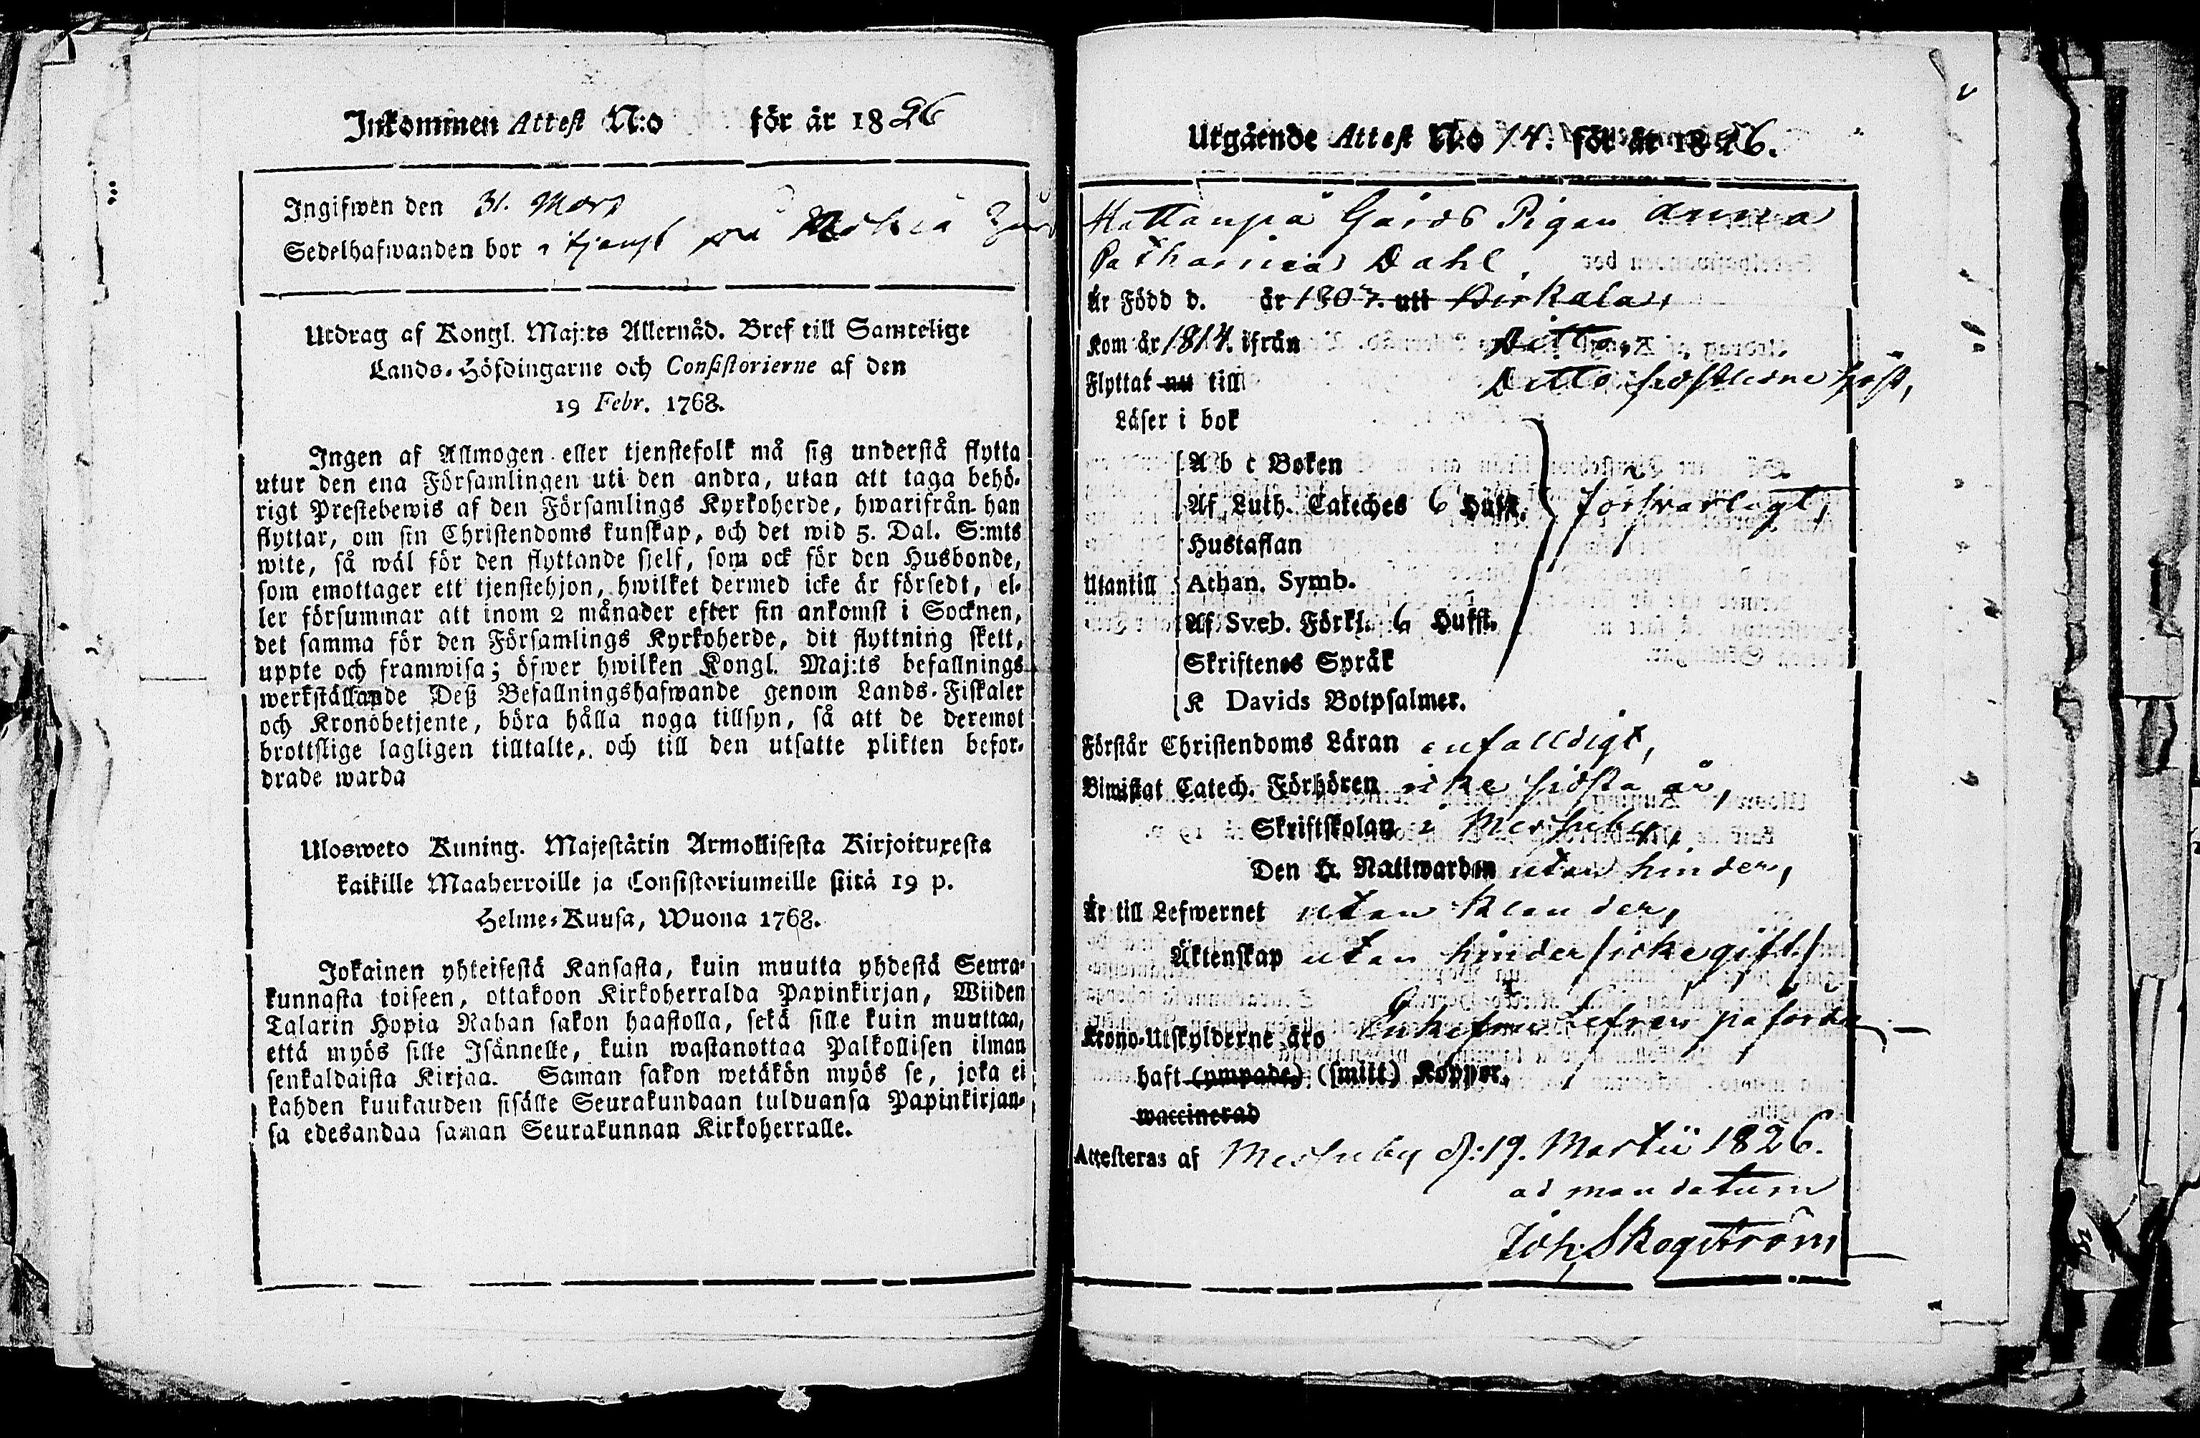 Inkommen Attest N:o för år 1826
Ingifwen den 31. Mars
Sedelhafwanden bor i tjenst på Nokia
Utdrag af Kongl. Maj:ts Allernåd. Bref till Samtelige
Lands-Höfdingarne och Consistorierne af den
19 Febr. 1768.
Ingen af Allmogen eller tjenstefolk må sig understå flytta
utur den ena Församlingen uti den andra, utan att taga behö-
rigt Prestebewis af den Församlings Kyrkoherde, hwarifrån han
flyttar, om sin Christendoms kunskap, och det wid 5. Dal. S:mts
wite, så wäl för den flyttande sjelf, som ock för den Husbonde,
som emottager ett tjenstehjon, hwilket dermed icke är försedt, el-
ler försummar att inom 2 månader efter sin ankomst i Socknen,
det samma för den Församlings Kyrkoherde, dit flyttning skett,
uppte och framwisa; öfwer hwilken Kongl. Maj:ts befallnings
werkställande Deß Befallningshafwande genom Lands-Fiskaler
och Kronobetjente, böra hålla noga tillsyn, så att de deremot
brottslige lagligen tilltalte, och till den utsatte plikten befor-
drade warda
Ulosweto Kuning. Majestätin Armollisesta Kirjoituxesta
kaikille Maaherroille ja Consistoriumeille siitä 19 p.
Helme-Kuusa, Wuona 1768.
Jokainen yhteisestä Kansasta, kuin muutta yhdestä Seura-
kunnasta toiseen, ottakoon Kirkoherralda Papinkirjan, Wiiden
Talarin Hopia Rahan sakon haastolla, sekä sille kuin muuttaa,
että myös sille Isännelle, kuin wastanottaa Palkollisen ilman
senkaldaista Kirjaa. Saman sakon wetäkön myös se, joka ei
kahden kuukauden sisälle Seurakundaan tulduansa Papinkirjan-
sa edesandaa saman Seurakunnan Kirkoherralle.
Utgående Attest N:o 14. för år 1826.
Hattanpä Gårds Pigan Anna
Catharina Dahl,
Är Född d. år 1807. uti Birkala,
Kom år 1814. ifrån Ditto,
Flyttat nu till Ditto sidstledne höst,
Läser i bok
A b c Boken
Af Luth. Cateches 6 Hufst. försvarligt,
Hustaflan
Utantill Athan. Symb.
Af Sveb. Förkl. 6 Hufst.
Skriftenes Språk
K Davids Botpsalmer.
Förstår Christendoms Läran enfalldigt,
Biwistat Catech. Förhören icke sidsta år,
Skriftskolan i Messuby,
Den H. Nattwarden utan hinder,
Är till Lefwernet utan klander,
Äktenskap utan hinder /icke gift./
Krono-Utskylderne äro
haft (ympade) (smitt) Koppor,
waccinerad
Attesteras af Messuby d: 19. Martii 1826.
ad mandatum
Joh. Skogström